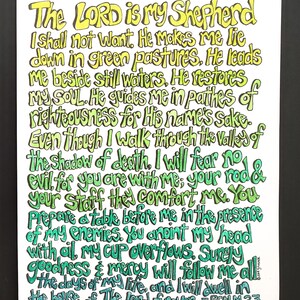 The LORD is my Shepherd
I shall not want. He makes me lie
down in green pastures. He leads
me beside still waters. He restores
my soul. He guides me in pathes of
righteousness for His name's sake.
Even though I walk through the valley of
the shadow of death, I will fear no
evil, for you are with me; your rod &
your staff they comfort me. You
prepare a table before me in the presence
of my enemies. You anoint my head
with oil, my cup overflows. Surely
goodness & mercy will follow me all
the days of my life, and I will dwell in
the house of the Lord